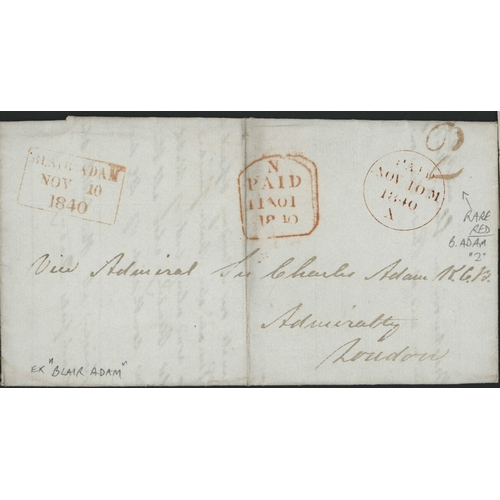 BLAIR ADAM
NOV 10
1840
N
PAID
11 NO 1
1840
PAID
NOV 10 M
1840
A
2
RARE
RED
B. ADAM
"2"
Vice Admiral Sir Charles Adam K.C.B.
Admiralty
London
EX "BLAIR ADAM"